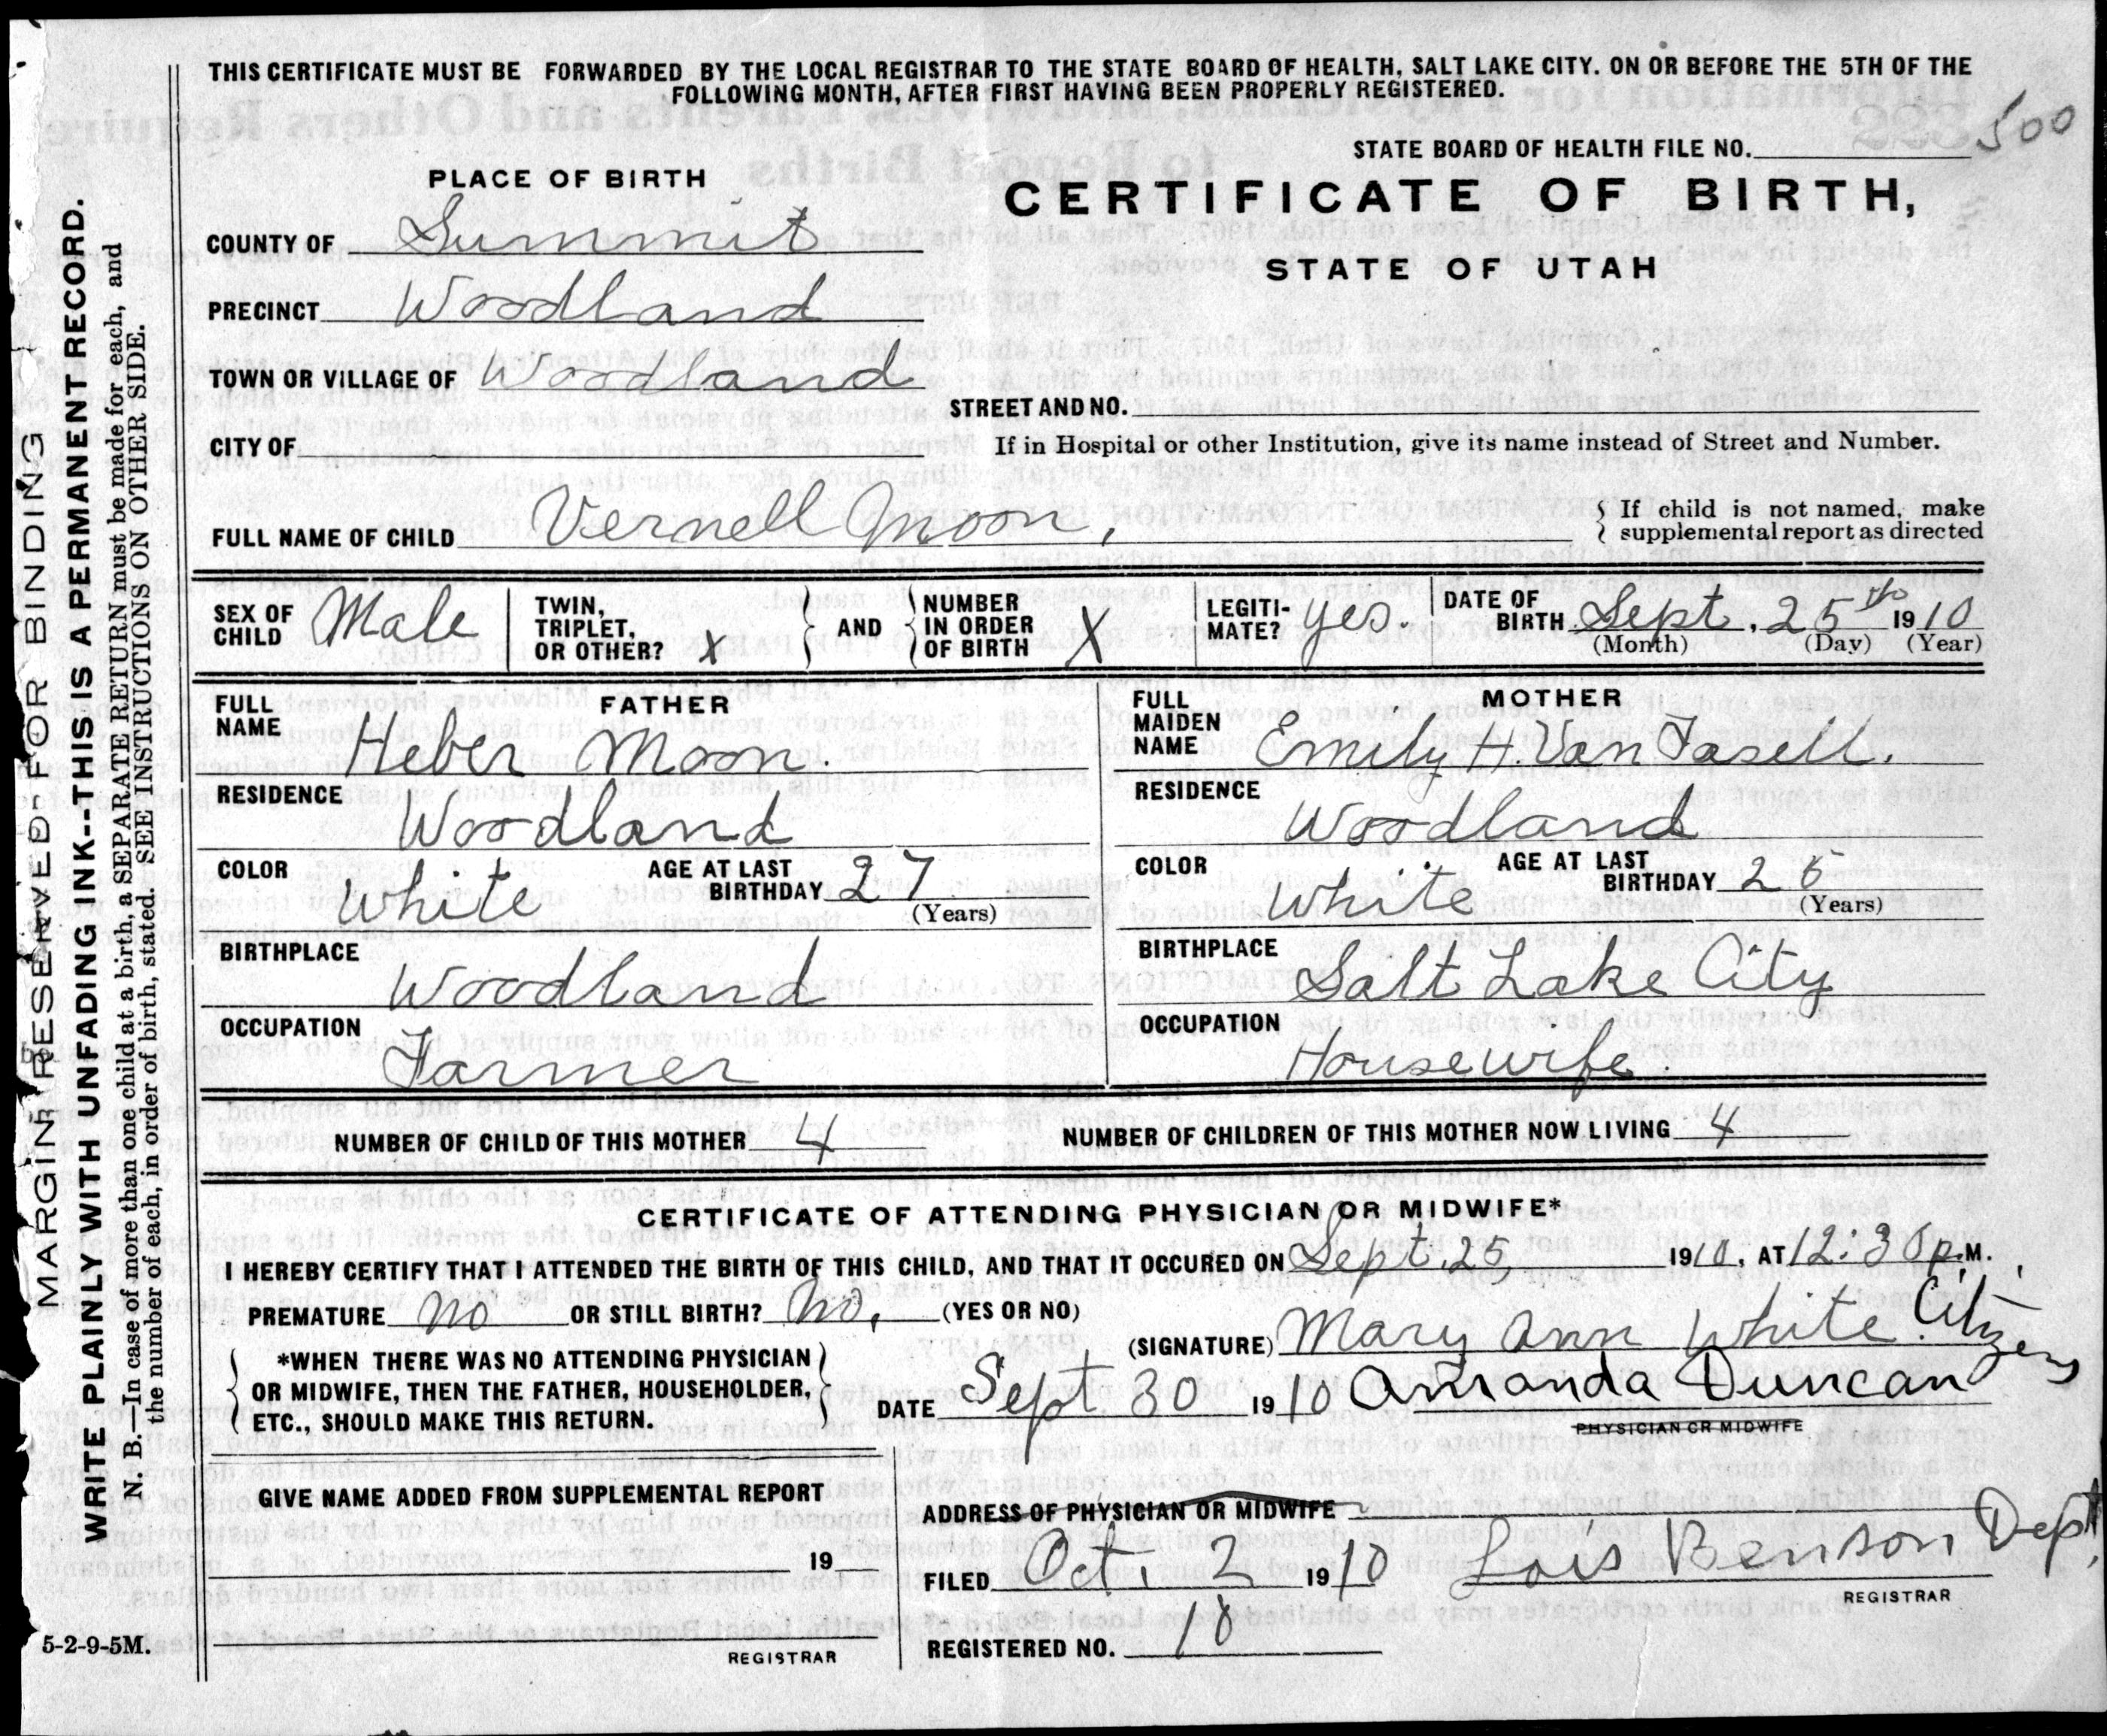 THIS CERTIFICATE MUST BE FORWARDED BY THE LOCAL REGISTRAR TO THE STATE BOARD OF HEALTH, SALT LAKE CITY. ON OR BEFORE THE 5TH OF THE
FOLLOWING MONTH, AFTER FIRST HAVING BEEN PROPERLY REGISTERED.
500
STATE BOARD OF HEALTH FILE NO.
PLACE OF BIRTH
CERTIFICATE OF BIRTH,
STATE OF UTAH
COUNTY OF Summit
PRECINCT Woodland
TOWN OR VILLAGE OF Woodland
STREET AND NO.
CITY OF
If in Hospital or other Institution, give its name instead of Street and Number.
FULL NAME OF CHILD Vernell Moon,
{ If child is not named, make
{ supplemental report as directed
SEX OF CHILD Male
TWIN, TRIPLET, OR OTHER? X
} AND {
NUMBER IN ORDER OF BIRTH X
LEGITI-MATE? yes.
DATE OF BIRTH Sept. 25th 1910
(Month) (Day) (Year)
FATHER
FULL NAME Heber Moon.
RESIDENCE
Woodland
COLOR White AGE AT LAST BIRTHDAY 27
(Years)
BIRTHPLACE
Woodland
OCCUPATION
Farmer
MOTHER
FULL MAIDEN NAME Emily H. Van Tasell.
RESIDENCE
Woodland
COLOR White AGE AT LAST BIRTHDAY 26
(Years)
BIRTHPLACE
Salt Lake City
OCCUPATION
Housewife.
NUMBER OF CHILD OF THIS MOTHER 4 NUMBER OF CHILDREN OF THIS MOTHER NOW LIVING 4
CERTIFICATE OF ATTENDING PHYSICIAN OR MIDWIFE*
I HEREBY CERTIFY THAT I ATTENDED THE BIRTH OF THIS CHILD, AND THAT IT OCCURED ON Sept. 25, 1910, AT 12:30 p.M.
PREMATURE no OR STILL BIRTH? no. (YES OR NO)
(SIGNATURE) Mary Ann White Citizens
*WHEN THERE WAS NO ATTENDING PHYSICIAN
OR MIDWIFE, THEN THE FATHER, HOUSEHOLDER,
ETC., SHOULD MAKE THIS RETURN.
DATE Sept 30 1910 Amanda Duncan
PHYSICIAN OR MIDWIFE
GIVE NAME ADDED FROM SUPPLEMENTAL REPORT
19
REGISTRAR
ADDRESS OF PHYSICIAN OR MIDWIFE
FILED Oct. 2 1910 Lois Benson Dept.
REGISTRAR
REGISTERED NO. 18
5-2-9-5M.
MARGIN RESERVED FOR BINDING
WRITE PLAINLY WITH UNFADING INK--THIS IS A PERMANENT RECORD.
N. B.—In case of more than one child at a birth, a SEPARATE RETURN must be made for each, and
the number of each, in order of birth, stated. SEE INSTRUCTIONS ON OTHER SIDE.